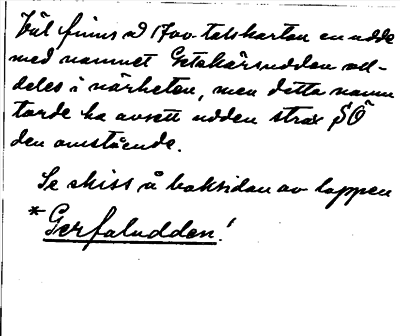 Väl finns å 1700-talskartan en udde
med namnet Getskärsudden all-
deles i närheten, men detta namn
torde ha avsett udden strax SÖ
den omstående.
Se skiss å baksidan av lappen
* Gerfaludden!